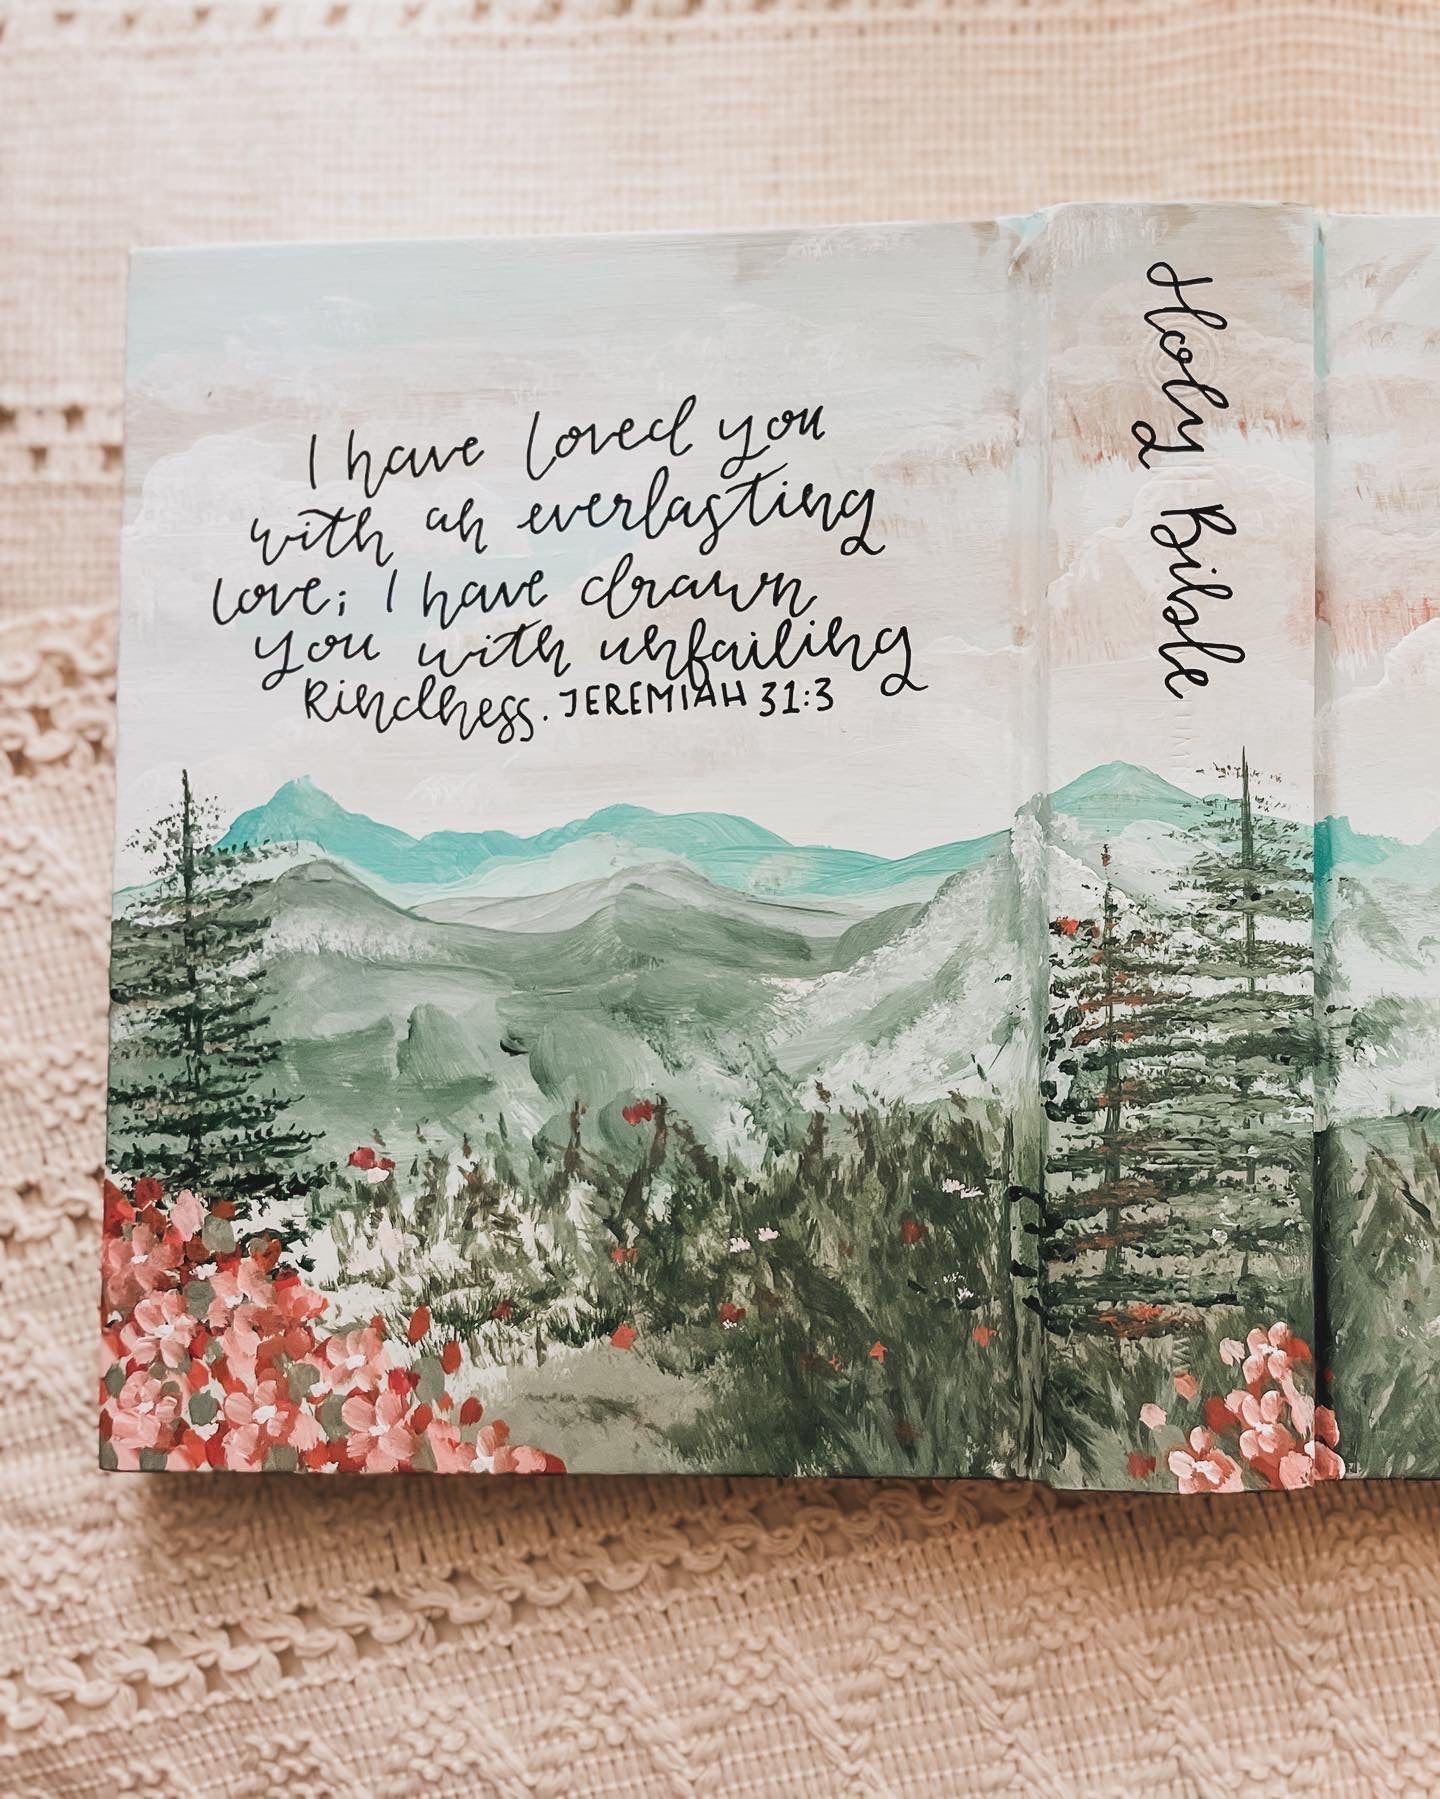 I have loved you
with an everlasting
love; I have drawn
you with unfailing
kindness. JEREMIAH 31:3
Holy Bible